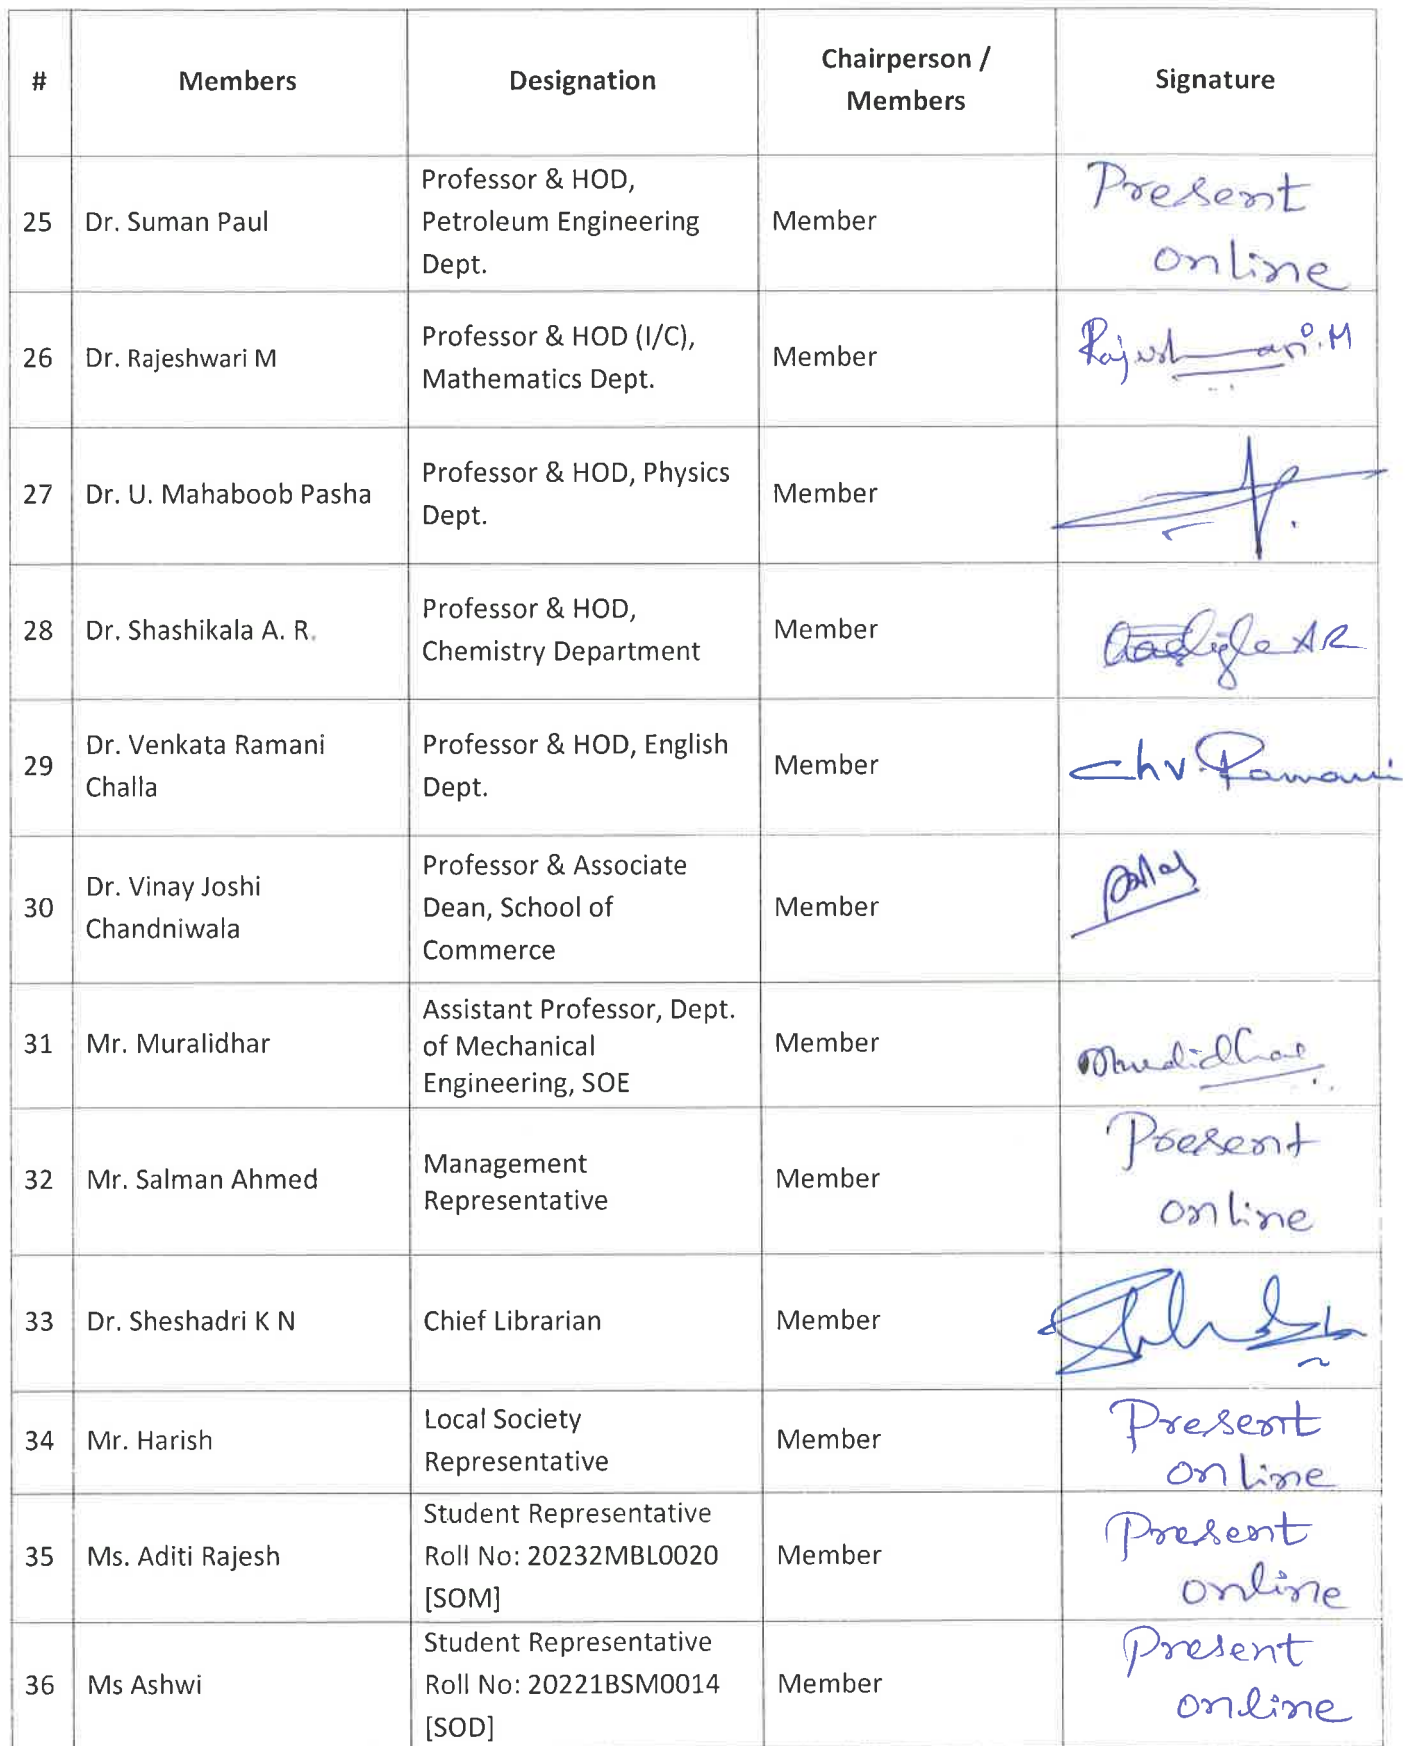 # Members Designation Chairperson / Members Signature
25 Dr. Suman Paul Professor & HOD, Petroleum Engineering Dept. Member Present online
26 Dr. Rajeshwari M Professor & HOD (I/C), Mathematics Dept. Member Rajeshwari.M
27 Dr. U. Mahaboob Pasha Professor & HOD, Physics Dept. Member
28 Dr. Shashikala A. R. Professor & HOD, Chemistry Department Member AR
29 Dr. Venkata Ramani Challa Professor & HOD, English Dept. Member Ch.V.Ramani
30 Dr. Vinay Joshi Chandniwala Professor & Associate Dean, School of Commerce Member
31 Mr. Muralidhar Assistant Professor, Dept. of Mechanical Engineering, SOE Member Muralidhar
32 Mr. Salman Ahmed Management Representative Member Present online
33 Dr. Sheshadri K N Chief Librarian Member
34 Mr. Harish Local Society Representative Member Present online
35 Ms. Aditi Rajesh Student Representative Roll No: 20232MBL0020 [SOM] Member Present online
36 Ms Ashwi Student Representative Roll No: 20221BSM0014 [SOD] Member Present online